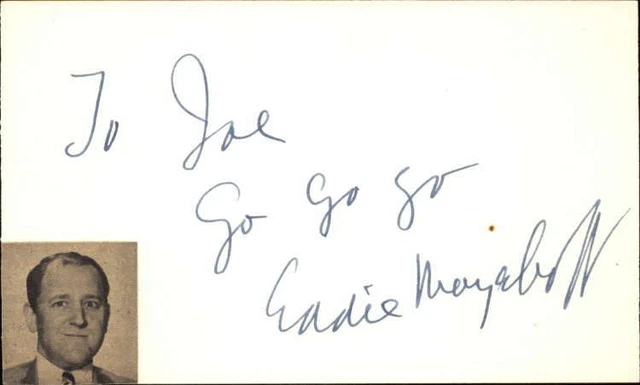 To Joe
Go Go Go
Eddie Mayehoff